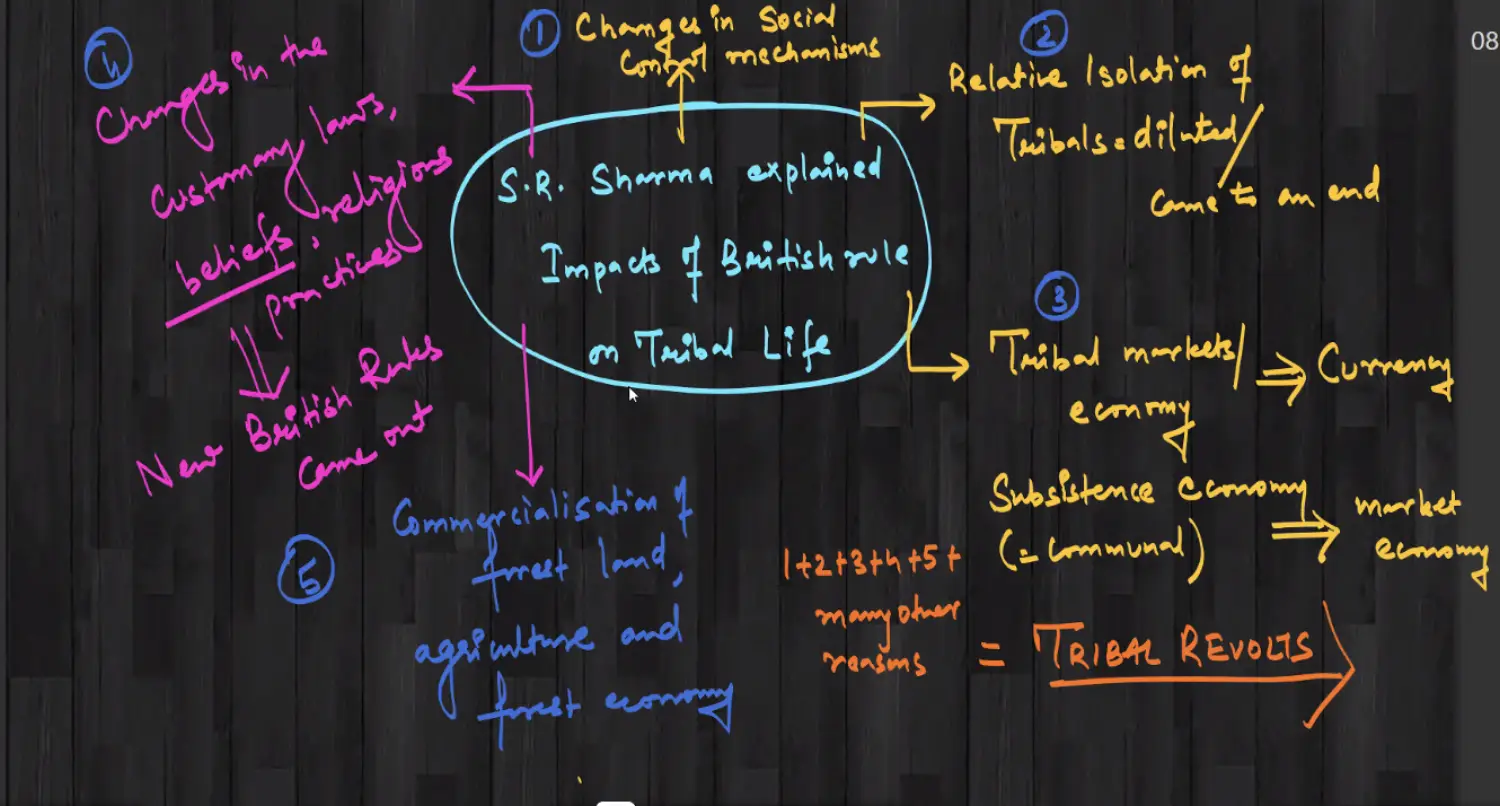 08
S.R. Sharma explained
Impacts of British rule
on Tribal Life
1
Changes in Social
Control mechanisms
2
Relative Isolation of
Tribals = diluted/
came to an end
3
Tribal markets/ ⇒ Currency
economy
Subsistence economy ⇒ market
(= communal) economy
4
Changes in the
Customary laws,
beliefs, religious
practices
New British Rules
Came out
5
Commercialisation of
forest land,
agriculture and
forest economy
1+2+3+4+5+
many other
reasons
= TRIBAL REVOLTS